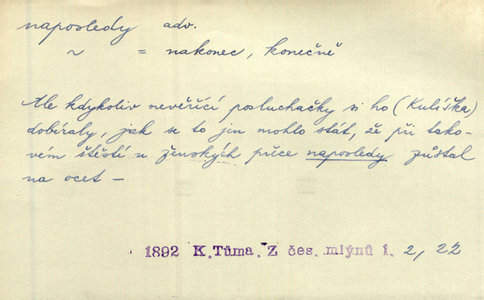 naposledy adv.
~ = nakonec, konečně
Ale kdykoliv nevěřící posluchačky si ho (Kulíška)
dobíraly, jak se to jen mohlo stát, že při tako-
vém štěstí u ženských přece naposledy zůstal
na ocet –
1892 K. Tůma. Z čes. mlýnů 1. 2, 22